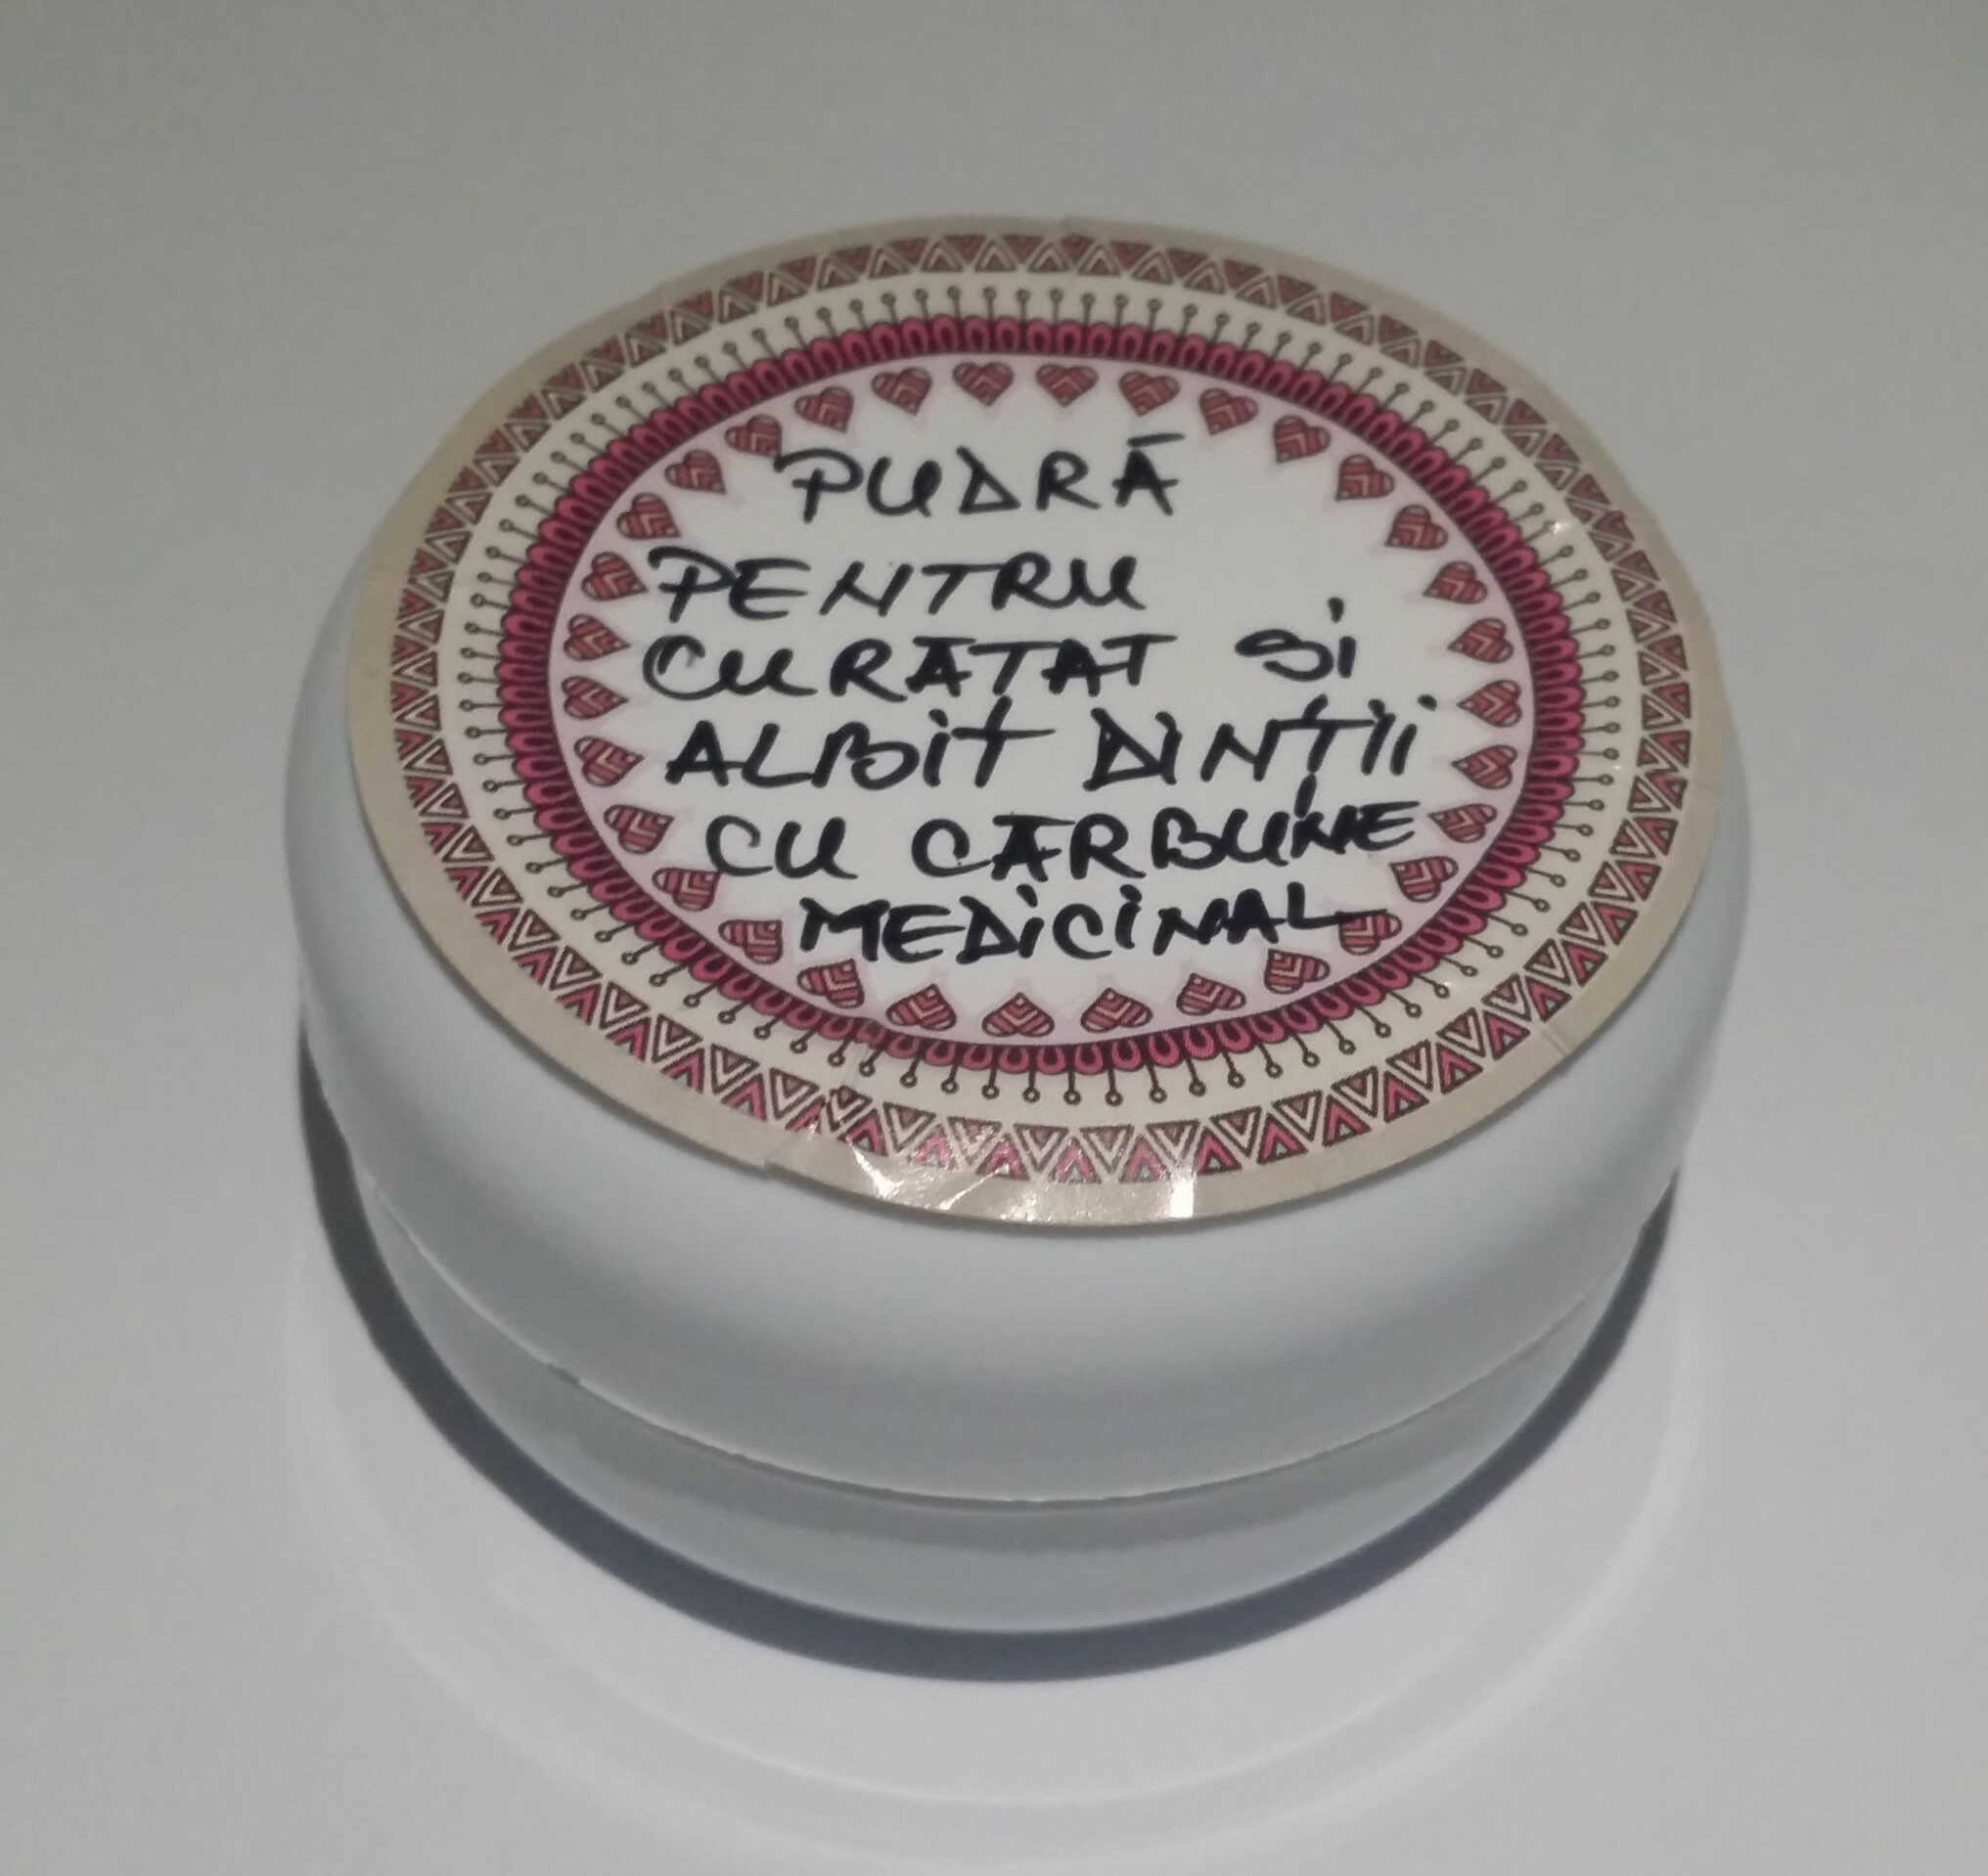 PUDRĂ
PENTRU
CURATAT Si
ALBiT DINȚII
CU CARBUNE
MEDiCiNAL